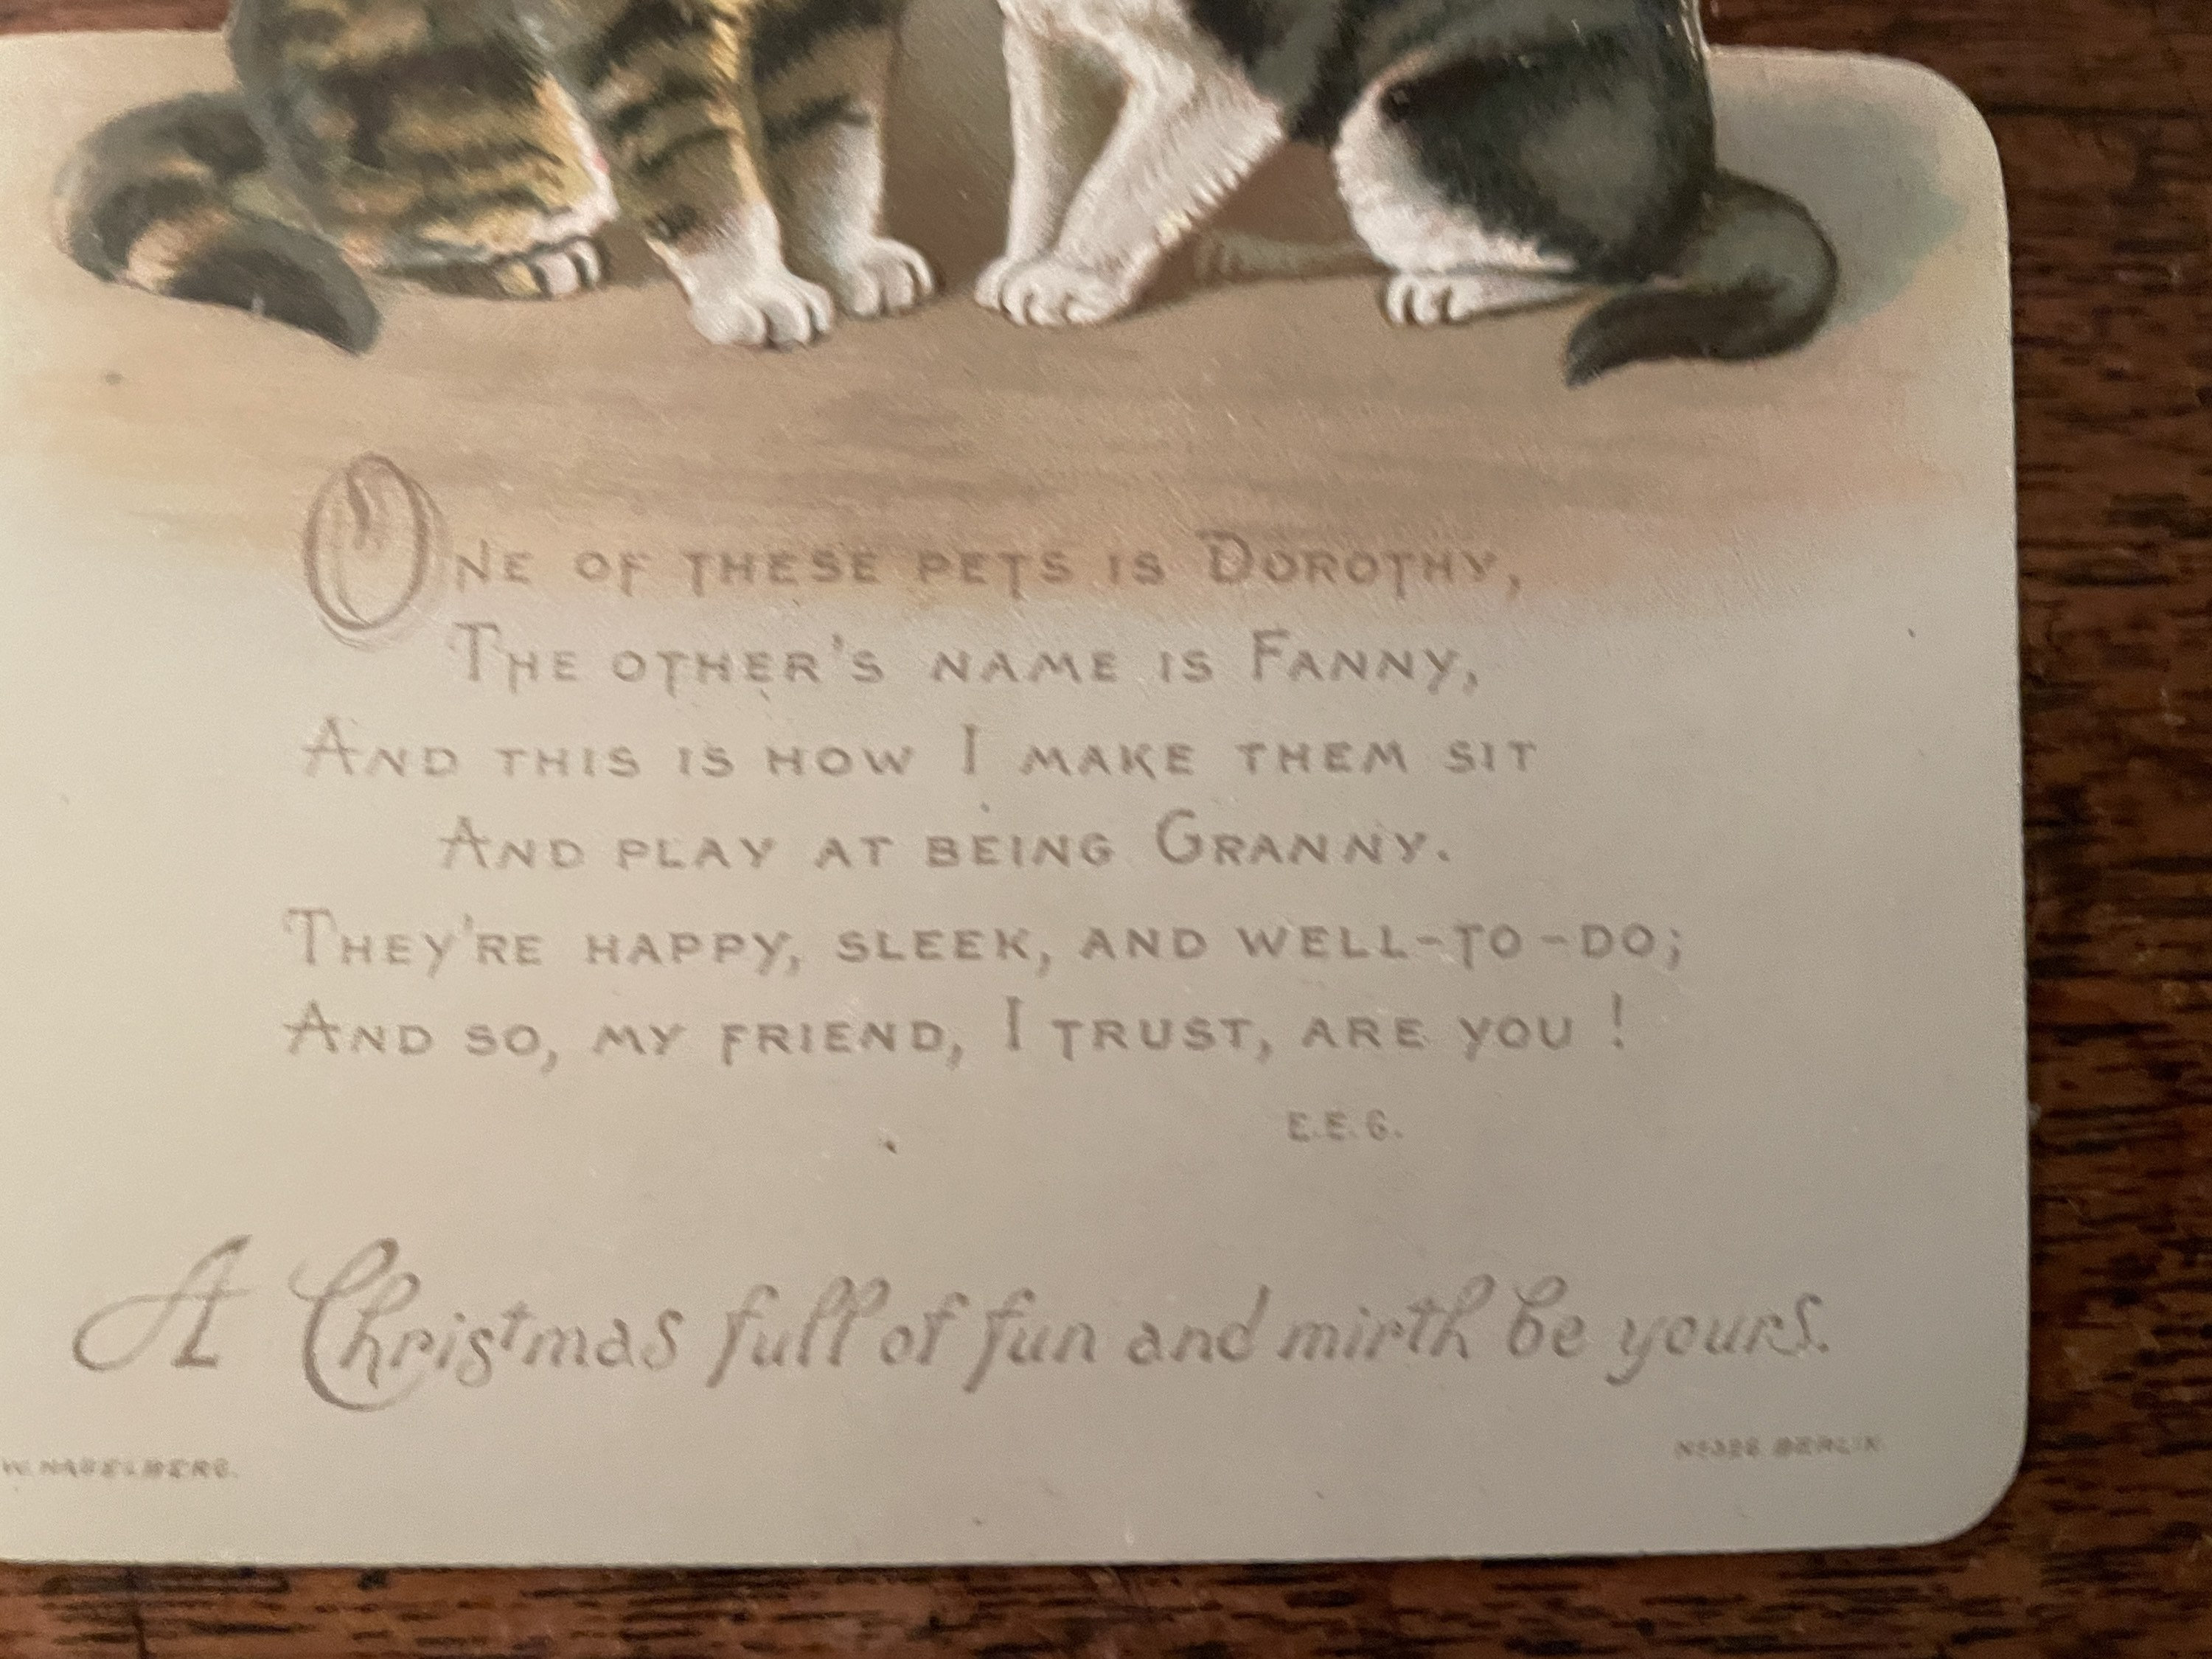 One of these pets is Dorothy,
The other's name is Fanny,
And this is how I make them sit
And play at being Granny.
They're happy, sleek, and well-to-do;
And so, my friend, I trust, are you!
E.E.G.
A Christmas full of fun and mirth be yours.
W. HAGELBERG.
BERLIN